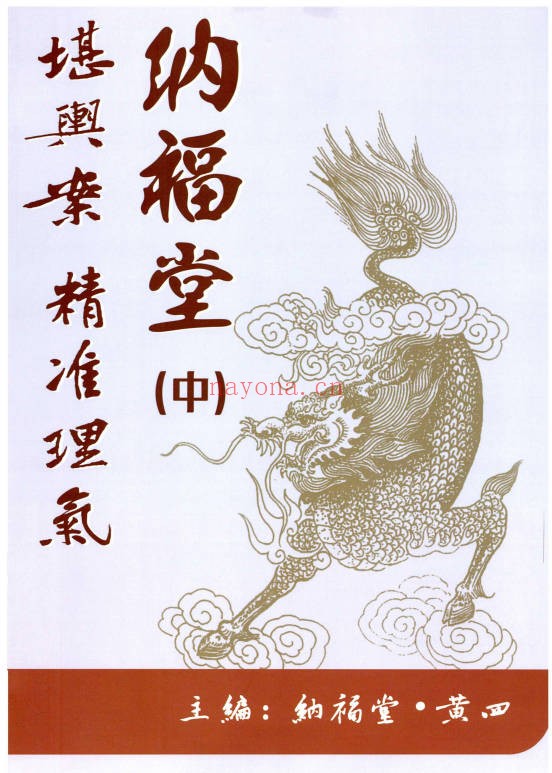 納福堂
(中)
堪輿案 精准理氣
nayona.cn
主編：納福堂·黄四